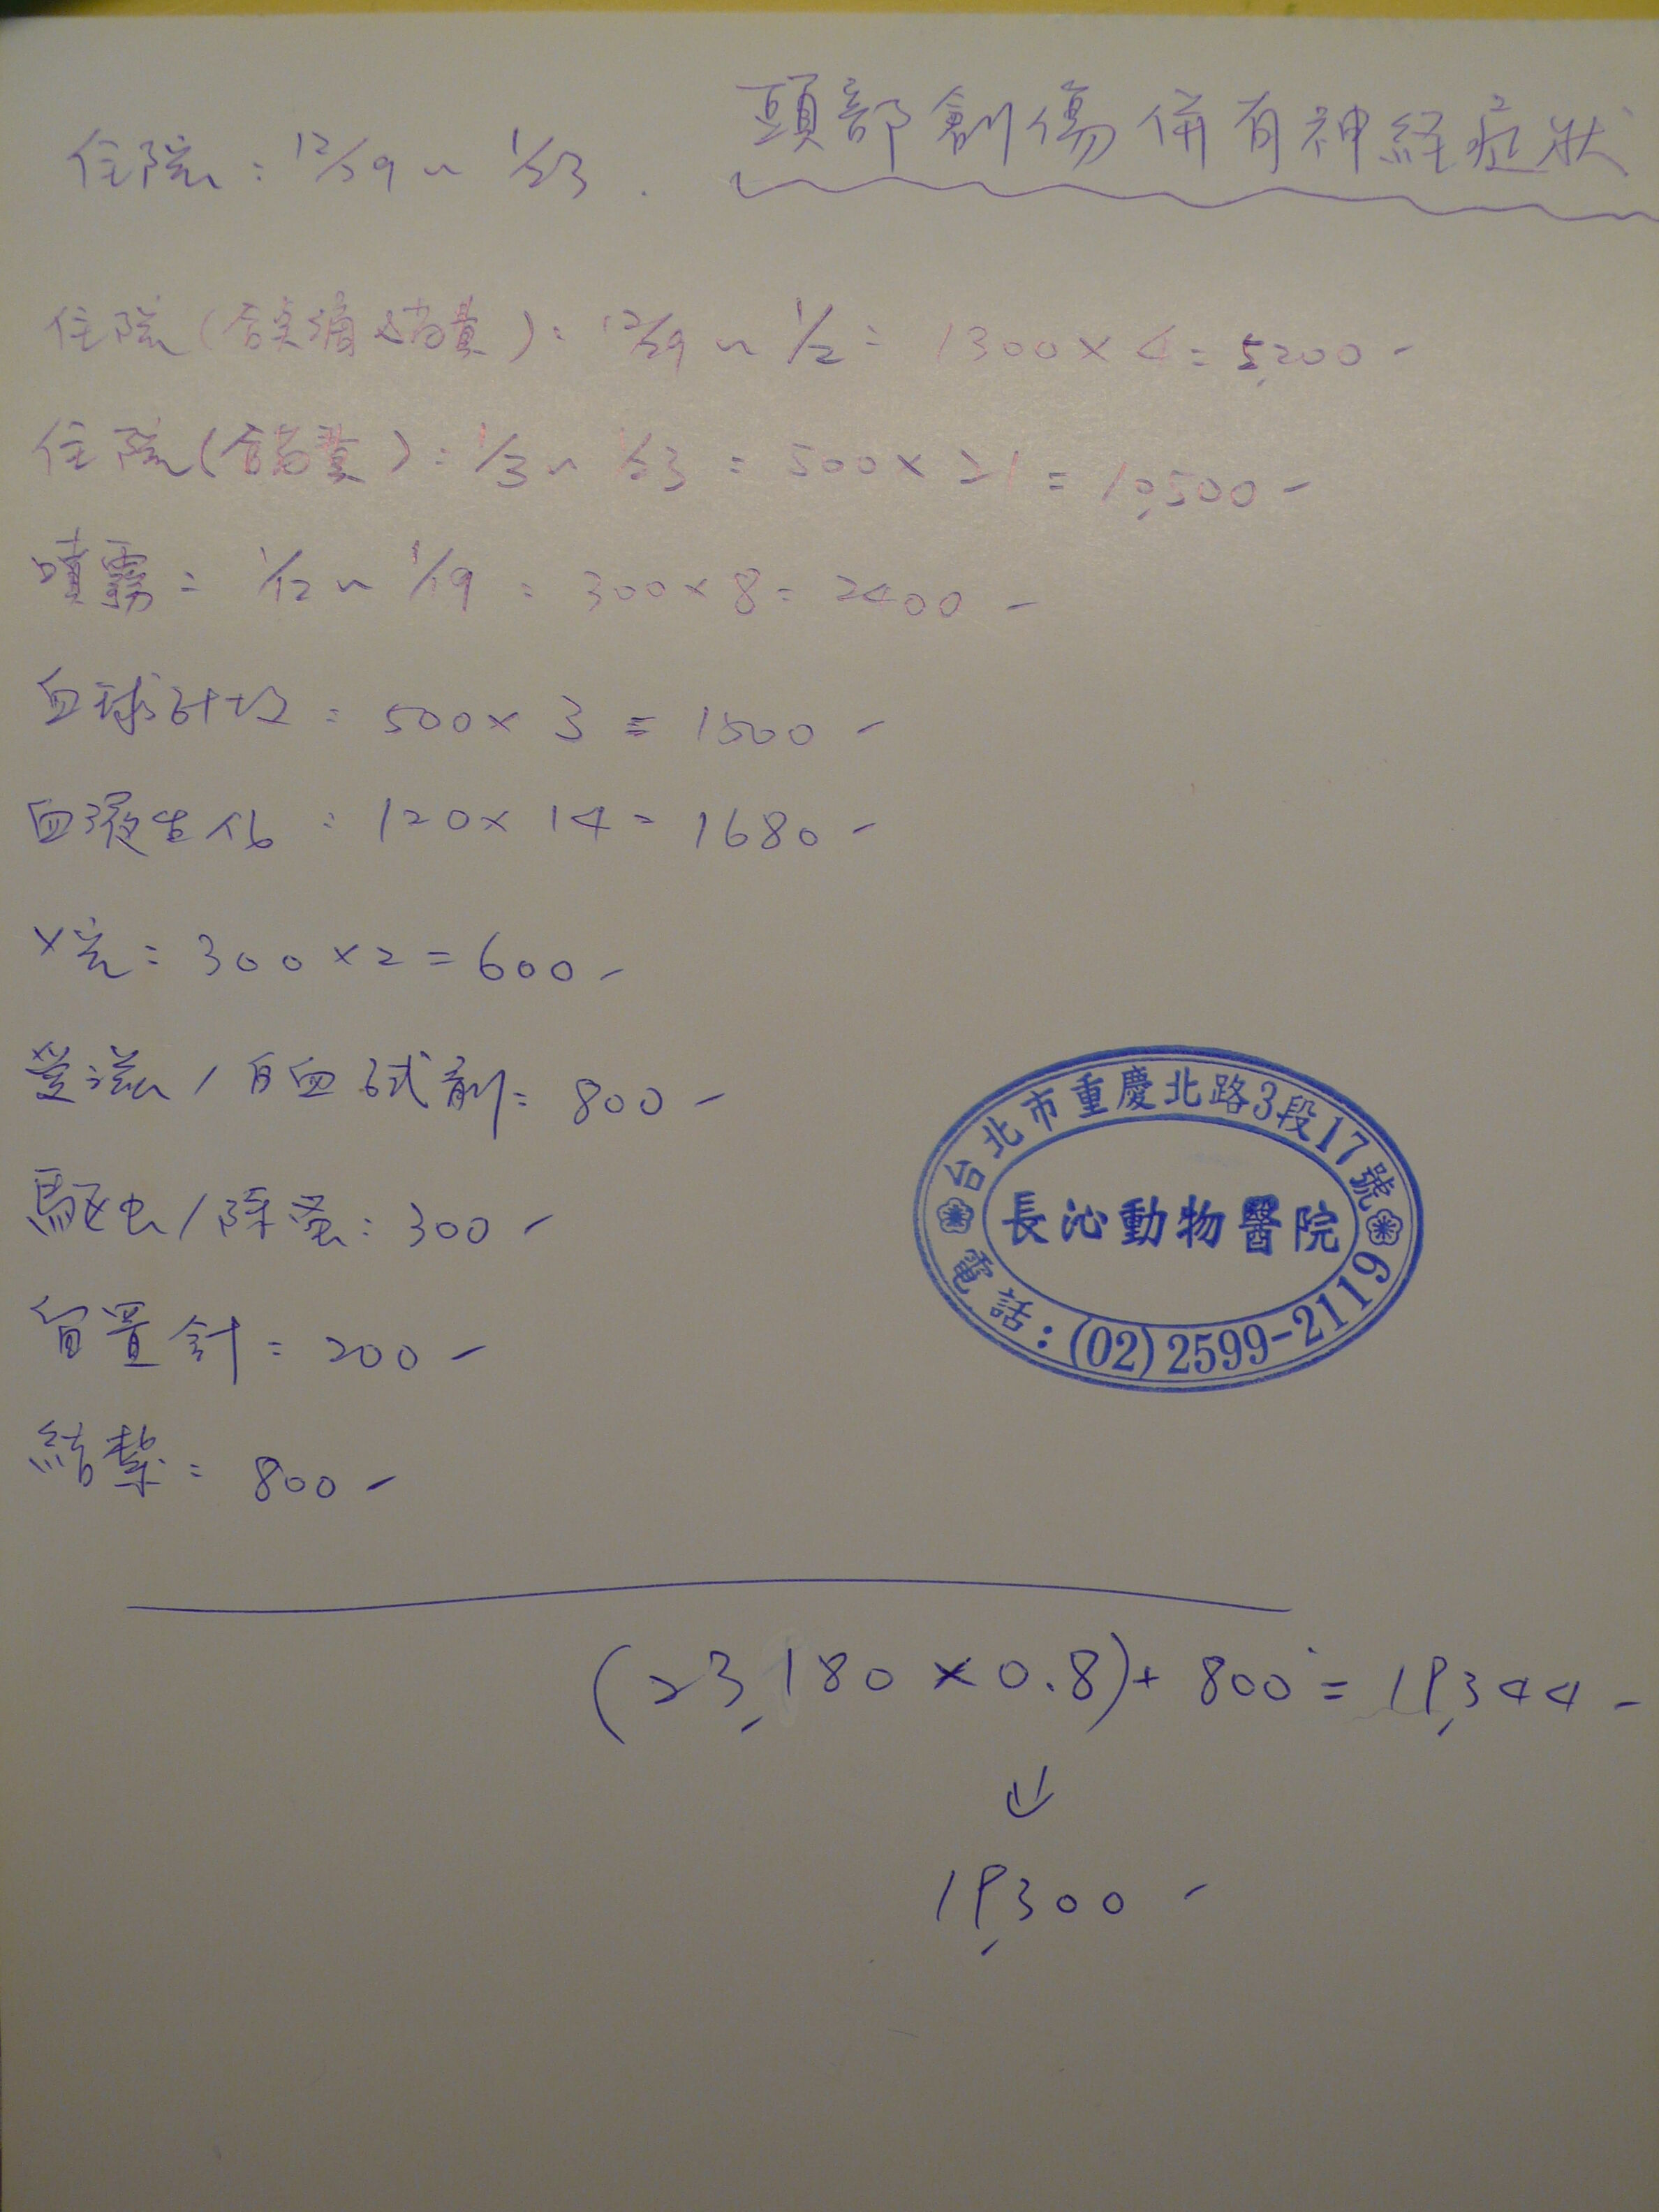 頭部創傷併有神経症狀
住院：12/29～1/23．
住院(含点滴&消費)：12/29～1/2：1300×4=5,200-
住院(含消費)：1/3～1/23：500×21=10,500-
噴霧：1/12～1/19：300×8=2400-
血球計故：500×3=1500-
血液生化：120×14=1680-
X光：300×2=600-
愛滋/白血試劑：800-
驅虫/除蚤：300-
留置針：200-
結紮：800-
(23,180×0.8)+800=19,344-
↓
19,300-
台北市重慶北路3段17號
長沁動物醫院
電話：(02)2599-2119